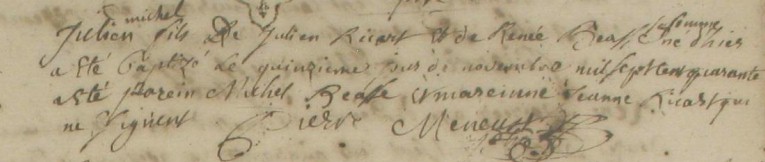 michel
Julien fils De Julien Ricart et de Renée Beasse sa femme né d'hier
a été baptizé le quinzieme jour de novembre mil sept cent quarante
a été parein Michel Beasse et mareinne Jeanne Ricart qui
ne signent Pierre Meneust